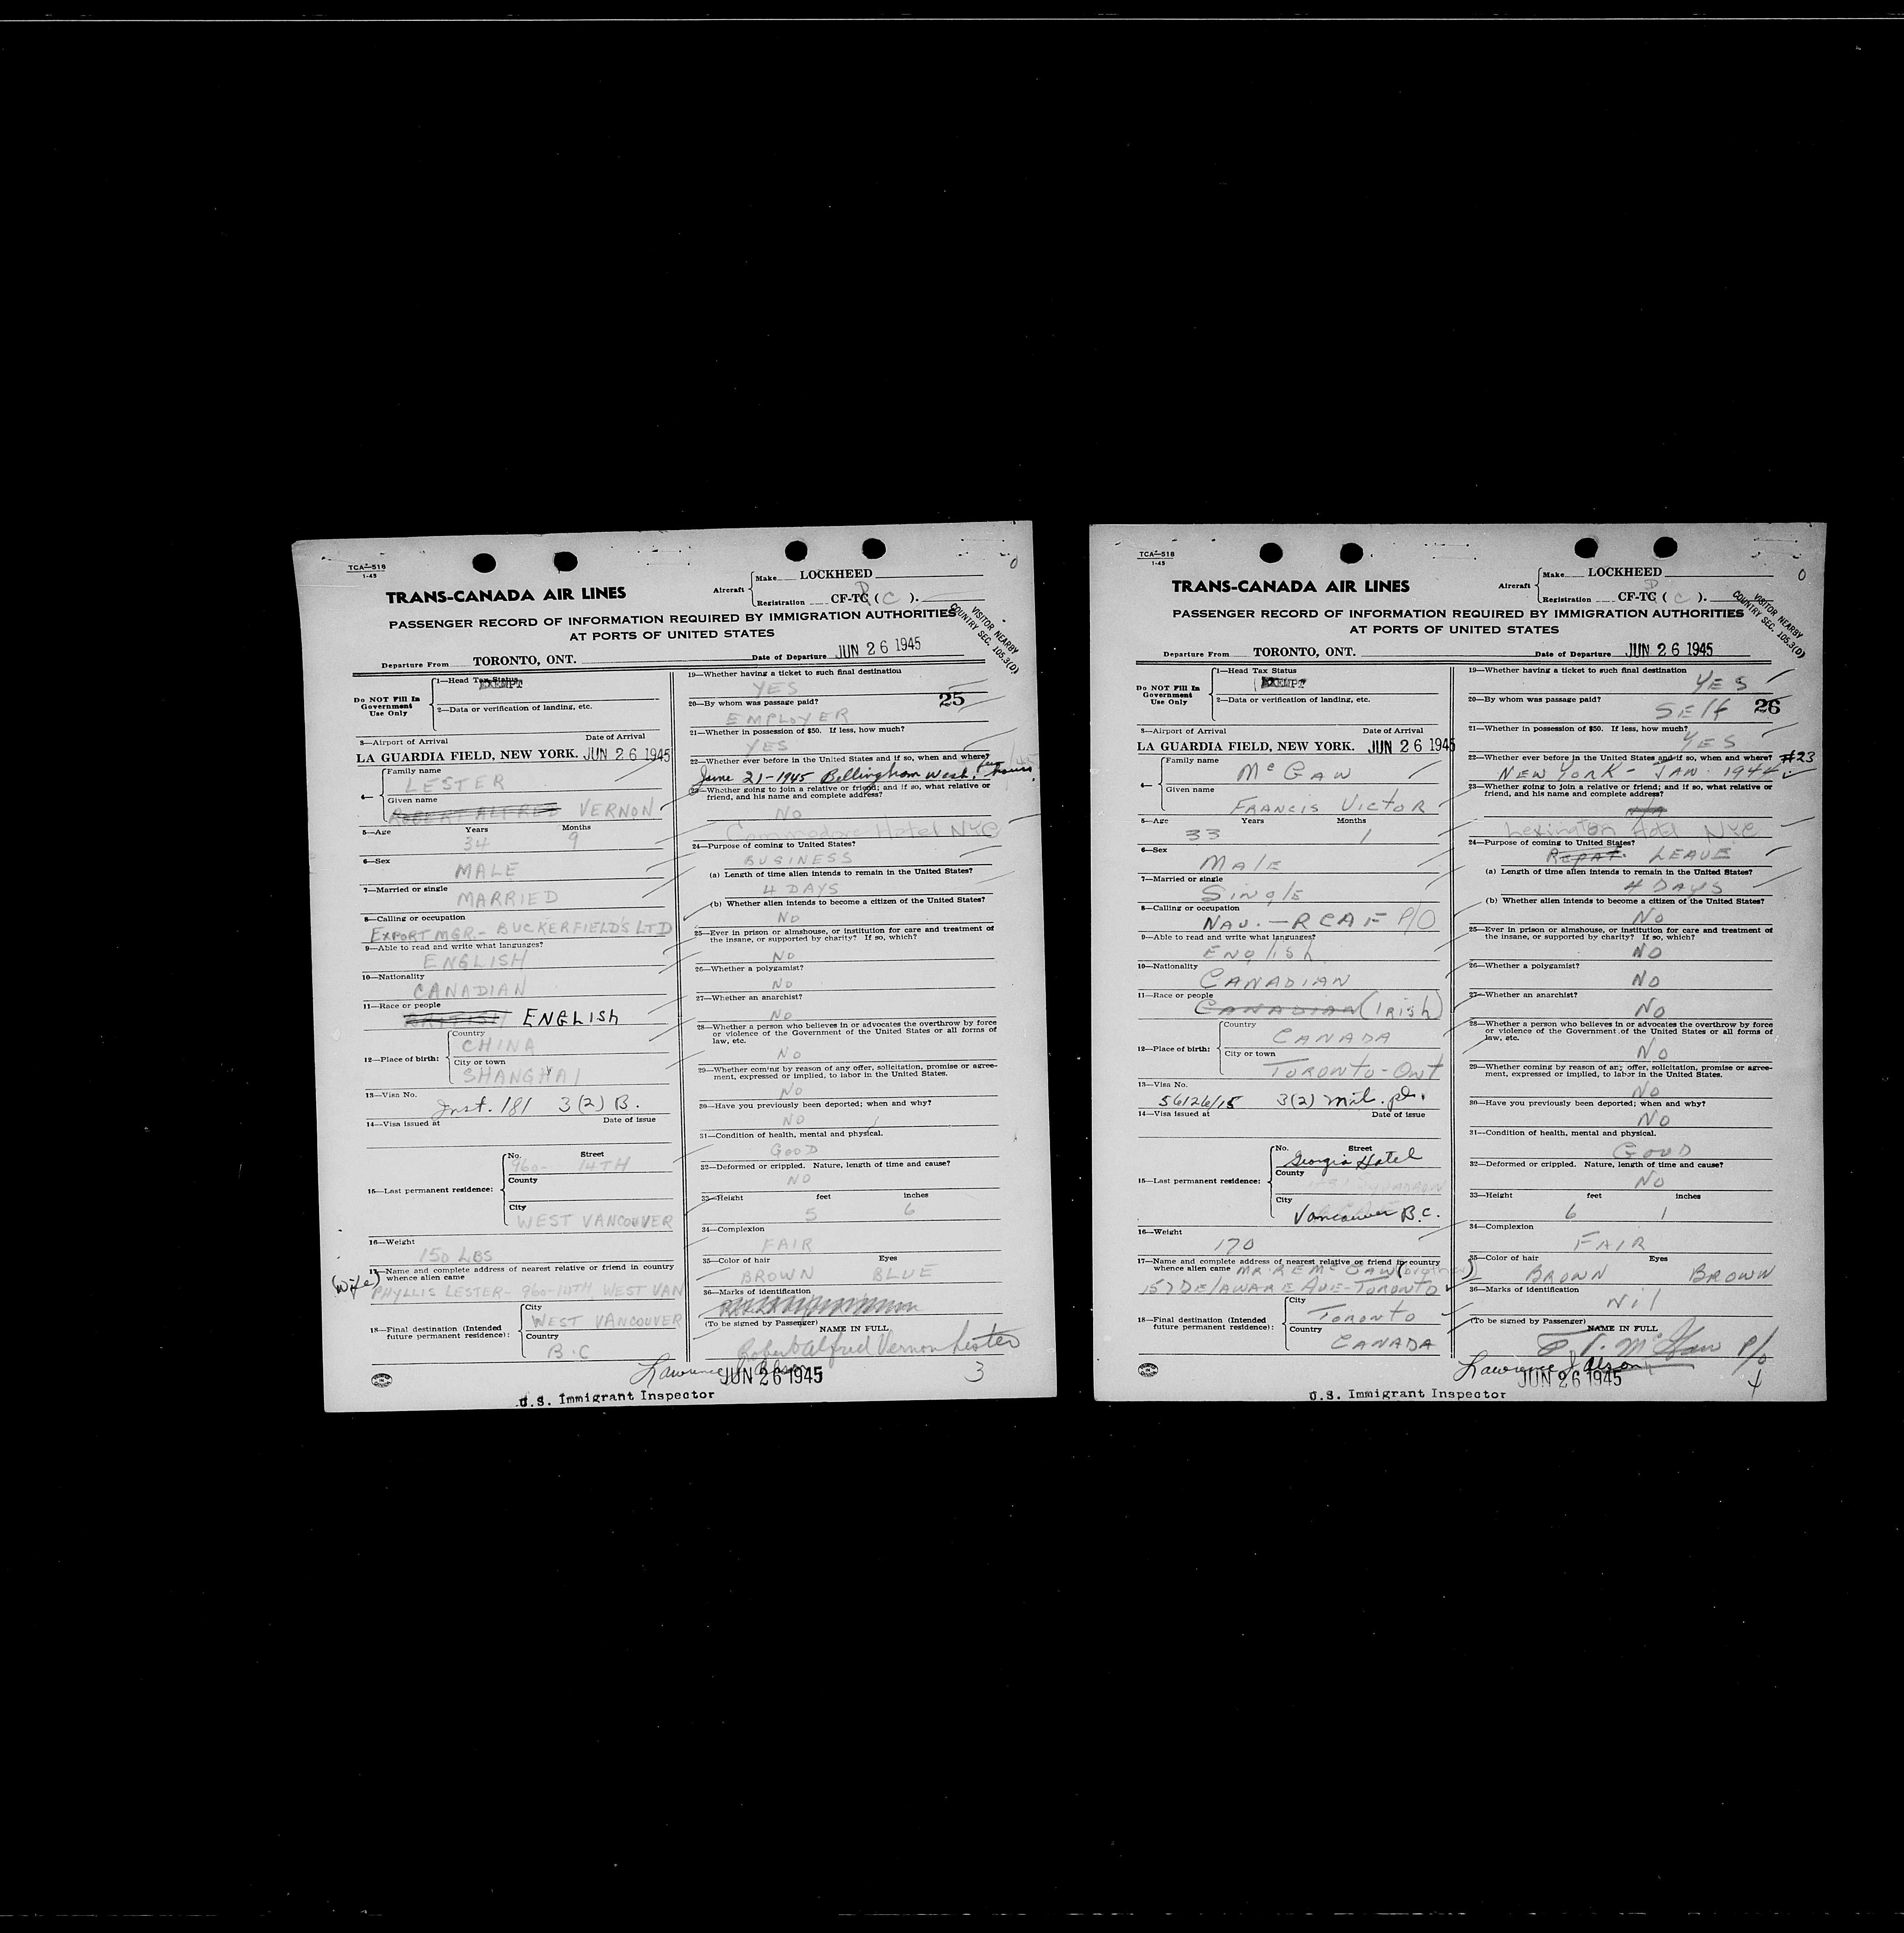 TCA-518
1-45
TRANS-CANADA AIR LINES
Aircraft
Make LOCKHEED
Registration CF-TC (C).
PASSENGER RECORD OF INFORMATION REQUIRED BY IMMIGRATION AUTHORITIES
AT PORTS OF UNITED STATES
VISITOR NEARBY
COUNTRY SEC. 105.3(D)
Departure From TORONTO, ONT.
Date of Departure JUN 26 1945
Do NOT Fill In
Government
Use Only
1—Head Tax Status
EXEMPT
2—Data or verification of landing, etc.
3—Airport of Arrival Date of Arrival
LA GUARDIA FIELD, NEW YORK. JUN 26 1945
4—
Family name
LESTER
Given name
ROBERT ALFRED VERNON
5—Age Years Months
34 9
6—Sex
MALE
7—Married or single
MARRIED
8—Calling or occupation
EXPORT MGR- BUCKERFIELD'S LTD
9—Able to read and write what languages?
ENGLISH
10—Nationality
CANADIAN
11—Race or people
BRITISH ENGLISH
12—Place of birth:
Country
CHINA
City or town
SHANGHAI
13—Visa No.
Inst. 181 3(2) B.
14—Visa issued at Date of issue
15—Last permanent residence:
No. Street
960- 14TH
County
City
WEST VANCOUVER
16—Weight
150 LBS
17—Name and complete address of nearest relative or friend in country
whence alien came
(Wife)
PHYLLIS LESTER- 960-14TH, WEST VAN
18—Final destination (Intended
future permanent residence):
City
WEST VANCOUVER
Country
B.C
19—Whether having a ticket to such final destination
YES
25
20—By whom was passage paid?
EMPLOYER
21—Whether in possession of $50. If less, how much?
YES
22—Whether ever before in the United States and if so, when and where?
June 21-1945 Bellingham Wash. few hours.
23—Whether going to join a relative or friend; and if so, what relative or
friend, and his name and complete address?
NO
Commodore Hotel NYC
24—Purpose of coming to United States?
BUSINESS
(a) Length of time alien intends to remain in the United States?
4 DAYS
(b) Whether alien intends to become a citizen of the United States?
NO
25—Ever in prison or almshouse, or institution for care and treatment of
the insane, or supported by charity? If so, which?
NO
26—Whether a polygamist?
NO
27—Whether an anarchist?
NO
28—Whether a person who believes in or advocates the overthrow by force
or violence of the Government of the United States or all forms of
law, etc.
NO
29—Whether coming by reason of any offer, solicitation, promise or agree-
ment, expressed or implied, to labor in the United States.
NO
30—Have you previously been deported; when and why?
NO
31—Condition of health, mental and physical.
GOOD
32—Deformed or crippled. Nature, length of time and cause?
NO
33—Height feet inches
5 6
34—Complexion
FAIR
35—Color of hair Eyes
BROWN BLUE
36—Marks of identification
(To be signed by Passenger)
NAME IN FULL
Robert Alfred Vernon Lester
Lawrence
JUN 26 1945
3
U.S. Immigrant Inspector
TCA-518
1-45
TRANS-CANADA AIR LINES
Aircraft
Make LOCKHEED
Registration CF-TC (C).
PASSENGER RECORD OF INFORMATION REQUIRED BY IMMIGRATION AUTHORITIES
AT PORTS OF UNITED STATES
VISITOR NEARBY
COUNTRY SEC. 105.3(D)
Departure From TORONTO, ONT.
Date of Departure JUN 26 1945
Do NOT Fill In
Government
Use Only
1—Head Tax Status
EXEMPT
2—Data or verification of landing, etc.
3—Airport of Arrival Date of Arrival
LA GUARDIA FIELD, NEW YORK. JUN 26 1945
4—
Family name
McGAW
Given name
FRANCIS VICTOR
5—Age Years Months
33 1
6—Sex
MALE
7—Married or single
SINGLE
8—Calling or occupation
NAV. - RCAF P/O
9—Able to read and write what languages?
ENGLISH
10—Nationality
CANADIAN
11—Race or people
CANADIAN (IRISH)
12—Place of birth:
Country
CANADA
City or town
TORONTO-ONT
13—Visa No.
56126/15 3(2) Mil. pl.
14—Visa issued at Date of issue
15—Last permanent residence:
No. Street
Georgia Hotel
County
City
Vancouver B.C.
16—Weight
170
17—Name and complete address of nearest relative or friend in country
whence alien came MR. R E McGAW (brother)
157 DELAWARE AVE-TORONTO
18—Final destination (Intended
future permanent residence):
City
TORONTO
Country
CANADA
19—Whether having a ticket to such final destination
YES
20—By whom was passage paid?
SELF
26
21—Whether in possession of $50. If less, how much?
YES
22—Whether ever before in the United States and if so, when and where? #23
NEW YORK - JAN. 1944
23—Whether going to join a relative or friend; and if so, what relative or
friend, and his name and complete address?
Lexington Hotel NYC
24—Purpose of coming to United States?
REPAT. LEAVE
(a) Length of time alien intends to remain in the United States?
4 DAYS
(b) Whether alien intends to become a citizen of the United States?
NO
25—Ever in prison or almshouse, or institution for care and treatment of
the insane, or supported by charity? If so, which?
NO
26—Whether a polygamist?
NO
27—Whether an anarchist?
NO
28—Whether a person who believes in or advocates the overthrow by force
or violence of the Government of the United States or all forms of
law, etc.
NO
29—Whether coming by reason of any offer, solicitation, promise or agree-
ment, expressed or implied, to labor in the United States.
NO
30—Have you previously been deported; when and why?
NO
31—Condition of health, mental and physical.
GOOD
32—Deformed or crippled. Nature, length of time and cause?
NO
33—Height feet inches
6 1
34—Complexion
FAIR
35—Color of hair Eyes
BROWN BROWN
36—Marks of identification
Nil
(To be signed by Passenger)
NAME IN FULL
F. V. McGaw P/O
Lawrence
JUN 26 1945
4
U.S. Immigrant Inspector